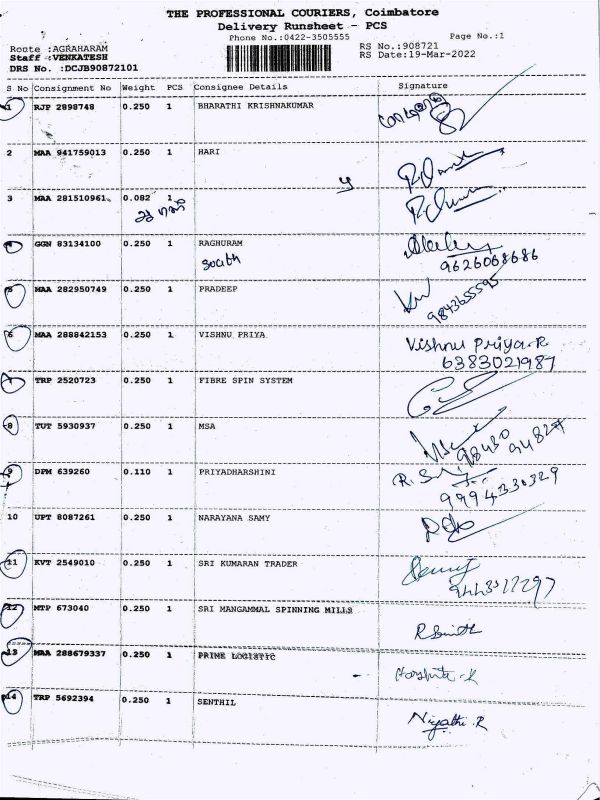 THE PROFESSIONAL COURIERS, Coimbatore
Delivery Runsheet - PCS
Phone No.:0422-3505555 Page No.:1
Route :AGRAHARAM RS No.:908721
Staff :VENKATESH RS Date:19-Mar-2022
DRS No. :DCJB90872101
S No Consignment No Weight PCS Consignee Details Signature
1 RJP 2898748 0.250 1 BHARATHI KRISHNAKUMAR
2 MAA 941759013 0.250 1 HARI
3 MAA 281510961 0.082 1
4 GGN 83134100 0.250 1 RAGHURAM
9626068686
5 MAA 282950749 0.250 1 PRADEEP
9843655595
6 MAA 288842153 0.250 1 VISHNU PRIYA Vishnu Priya.R
6383021987
7 TRP 2520723 0.250 1 FIBRE SPIN SYSTEM
8 TUT 5930937 0.250 1 MSA
98430
9 DPM 639260 0.110 1 PRIYADHARSHINI
9994330329
10 UPT 8087261 0.250 1 NARAYANA SAMY
11 KVT 2549010 0.250 1 SRI KUMARAN TRADER
12 MTP 673040 0.250 1 SRI MANGAMMAL SPINNING MILLS
13 MAA 288679337 0.250 1 PRIME LOGISTIC
14 TRP 5692394 0.250 1 SENTHIL